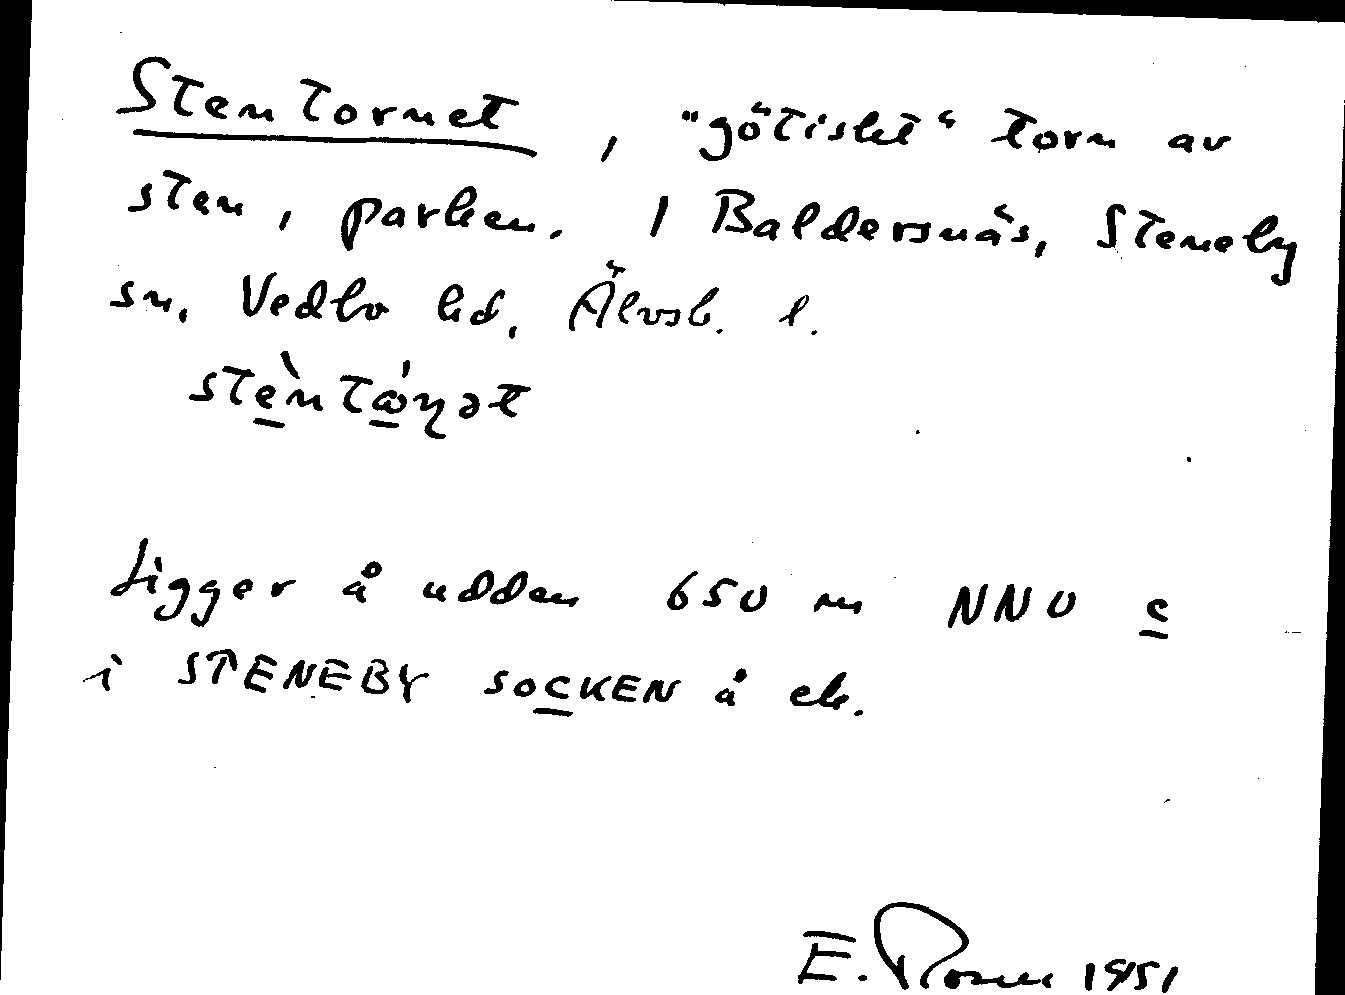 Stentornet, "götiskt" torn av
sten, parken. / Baldersnäs, Steneby
sn, Vedbo hd, Älvsb. l.
stèntɷ́ɳət
Ligger å udden 650 m NNO c
i STENEBY SOCKEN å ek.
E. Rosell 1951